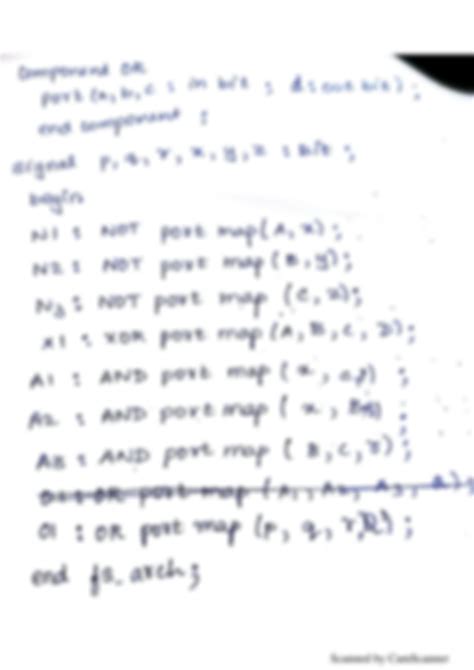 Component OR
port (a, b, c : in bit ; d : out bit) ;
end component ;
signal p, q, r, x, y, z : Bit ;
begin
N1 : NOT port map (A, x) ;
N2 : NOT port map (B, y) ;
N3 : NOT port map (C, z) ;
X1 : XOR port map (A, B, C, D) ;
A1 : AND port map ( x , ) ;
A2 : AND port map ( x , ) ;
A3 : AND port map ( B, C, r ) ;
O1 : OR port map (A1, A2, A3, ) ;
O1 : OR port map (p, q, r, ) ;
end fs_arch ;
Scanned by CamScanner